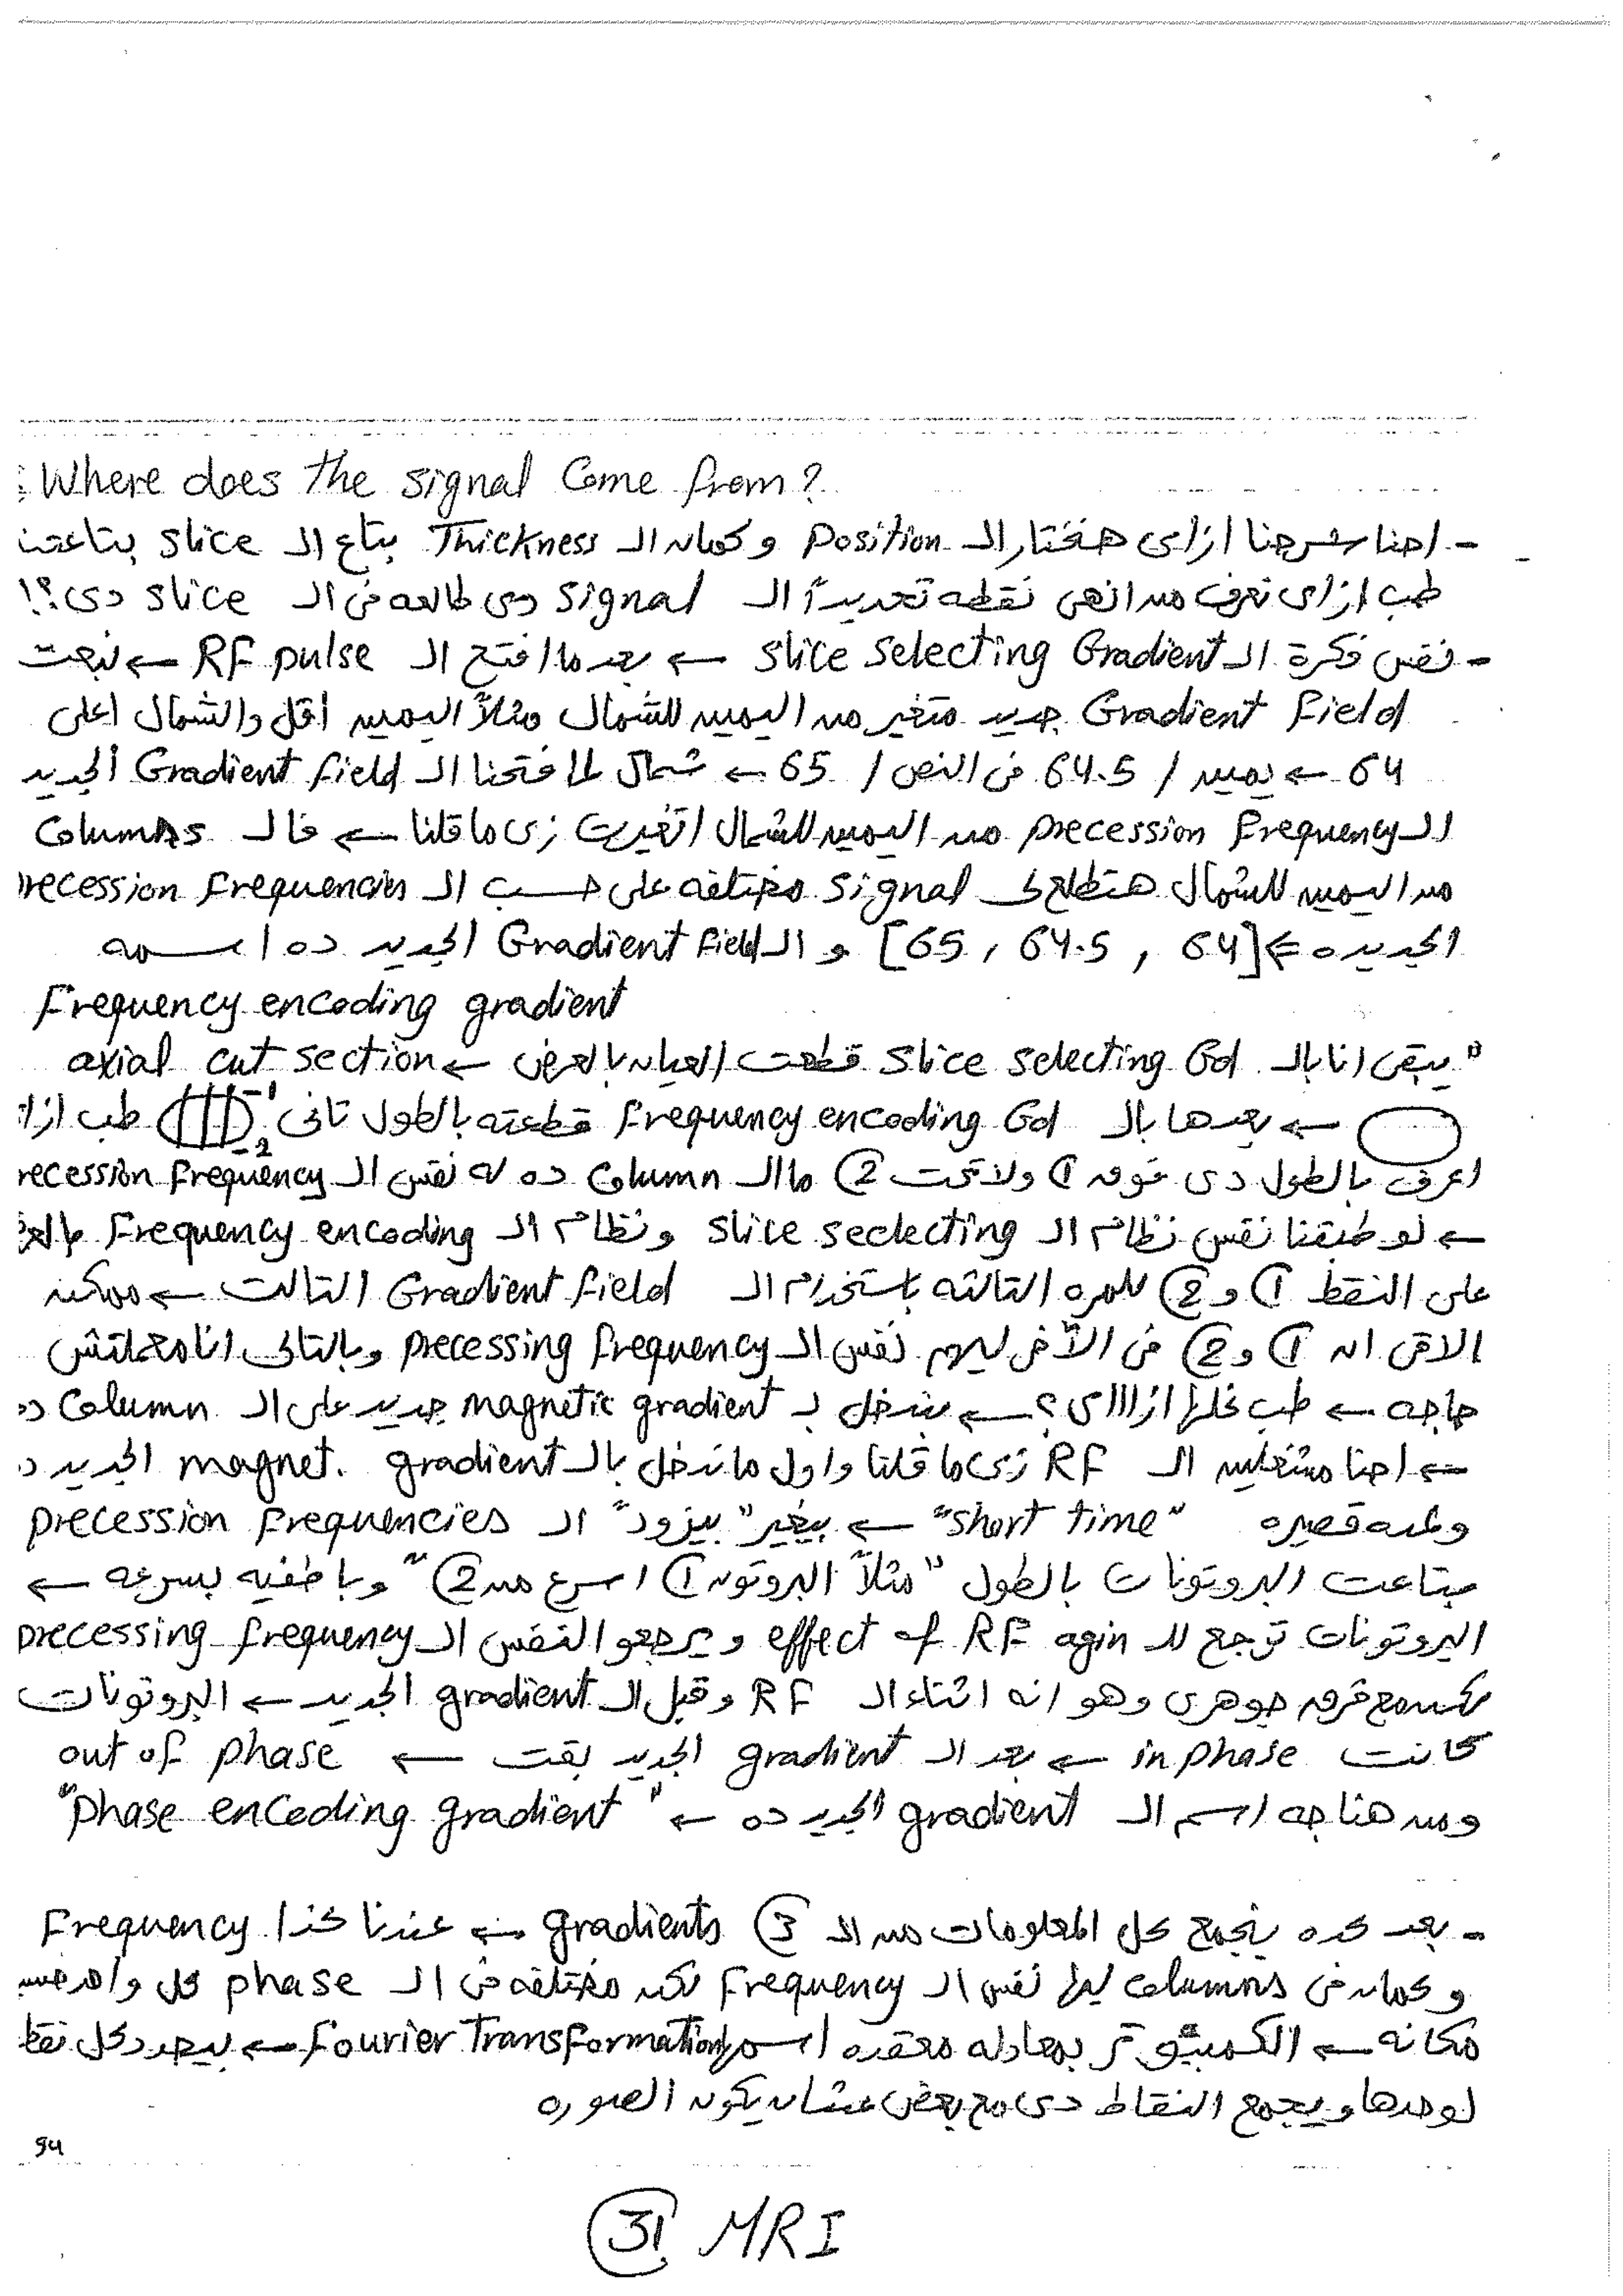 Where does the signal Come from?
- احنا شرحنا ازاى هنختار الـ Position وكمان الـ Thickness بتاع الـ slice بتاعتنا
طب ازاى نعرف من انهى نقطه تحديداً الـ signal دى طالعه فى الـ slice دى؟!
- نفس فكرة الـ slice selecting Gradient ← بعد ما افتح الـ RF pulse ← نبعت
Gradient Field جديد متغير من اليمين للشمال مثلاً اليمين اقل والشمال اعلى
64 ← يمين / 64.5 فى النص / 65 ← شمال لما فتحنا الـ Gradient Field الجديد
الـ precession Frequency من اليمين للشمال اتغيرت زى ما قلنا ← فالـ Columns
من اليمين للشمال هتطلع لى signal مختلفه على حسب الـ recession Frequencies
الجديده ⇐ [65 , 64.5 , 64] و الـ Gradient Field الجديد ده اسمه
Frequency encoding gradient
" يبقى انا بالـ slice selecting Gd قطعت العيان بالعرض ← axial cut section
← بعدها بالـ Frequency encoding Gd قطعته بالطول تانى 1 2 طب ازا
اعرف بالطول دى فوق ① ولا تحت ② ما الـ Column ده له نفس الـ recession Frequency
← لو طبقنا نفس نظام الـ slice seclecting ونظام الـ Frequency encoding
على النقط ① و ② للمره التالته باستخدام الـ Gradient Field التالت ← ممكن
الاقى ان ① و ② فى الآخر ليهم نفس الـ precessing frequency وبالتالى انا معملتش
حاجه ← طب نحلها ازاااى؟ ← بندخل بـ magnetic gradient جديد على الـ Column د
← احنا مشغلين الـ RF زى ما قلنا واول ما ندخل بالـ magnet. gradient الجديد د
ولمده قصيره "short time" ← بيغير "بيزود" الـ precession Frequencies
بتاعت البروتونات بالطول "مثلاً البروتون ① اسرع من ②" وباطفيه بسرعه ←
البروتونات ترجع للـ effect of RF agin ويرجعو النفس الـ precessing frequency
لكن مع فرق جوهرى وهو انه اثناء الـ RF وقبل الـ gradient الجديد ← البروتونات
كانت in phase ← بعد الـ gradient الجديد بقت ← out of phase
ومن هنا جه اسم الـ gradient الجديد ده ← "phase encoding gradient"
- بعد كده بنجمع كل المعلومات من الـ ③ gradients ← عندنا كذا Frequency
وكمان فى columns ليها نفس الـ Frequency لكن مختلفه فى الـ phase كل واحد حسب
مكانه ← الكمبيوتر بمعادله معقده اسمها Fourier Transformation ← بيحدد كل نقط
لوحدها ويجمع النقاط دى مع بعض عشان يكون الصوره
94
31 MRI